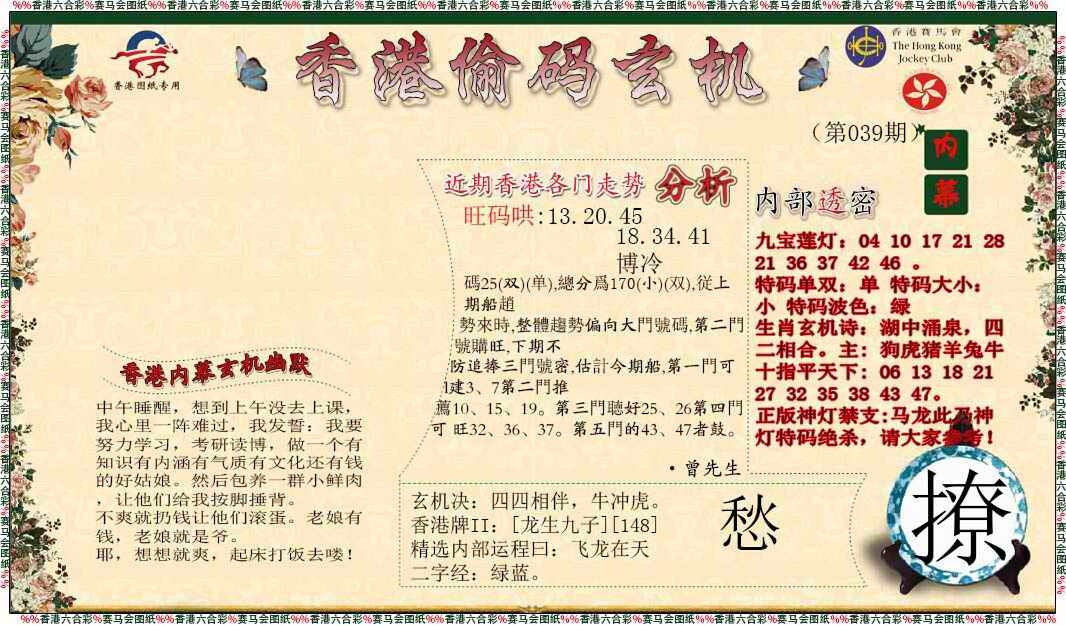 %%香港六合彩%赛马会图纸%%香港六合彩%赛马会图纸%%香港六合彩%赛马会图纸%%香港六合彩%赛马会图纸%%香港六合彩%赛马会图纸%%香港六合彩%赛马会图纸%%
香港图纸专用
香港偷码玄机
香港賽馬會
The Hong Kong
Jockey Club
(第039期)
内
幕
近期香港各门走势 分析
旺码哄:13.20.45
18.34.41
博冷
碼25(双)(单),總分爲170(小)(双),従上
期船趙
勢來時,整體趨勢偏向大門號碼,第二門
號購旺,下期不
防追捧三門號密,估計今期船,第一門可
1建3、7第二門推
薦10、15、19。第三門聴好25、26第四門
可 旺32、36、37。第五門的43、47者鼓。
·曾先生
内部透密
九宝莲灯: 04 10 17 21 28
21 36 37 42 46 。
特码单双: 单 特码大小:
小 特码波色: 绿
生肖玄机诗: 湖中涌泉, 四
二相合。主: 狗虎猪羊兔牛
十指平天下: 06 13 18 21
27 32 35 38 43 47。
正版神灯禁支:马龙此乃神
灯特码绝杀, 请大家参考!
香港内幕玄机幽默
中午睡醒, 想到上午没去上课,
我心里一阵难过, 我发誓: 我要
努力学习, 考研读博, 做一个有
知识有内涵有气质有文化还有钱
的好姑娘。然后包养一群小鲜肉
, 让他们给我按脚捶背。
不爽就扔钱让他们滚蛋。老娘有
钱, 老娘就是爷。
耶, 想想就爽, 起床打饭去喽!
玄机决: 四四相伴, 牛冲虎。
香港牌II: [龙生九子][148]
精选内部运程曰: 飞龙在天
二字经: 绿蓝。
愁
撩
%%香港六合彩%赛马会图纸%%香港六合彩%赛马会图纸%%香港六合彩%赛马会图纸%%香港六合彩%赛马会图纸%%香港六合彩%赛马会图纸%%香港六合彩%赛马会图纸%%